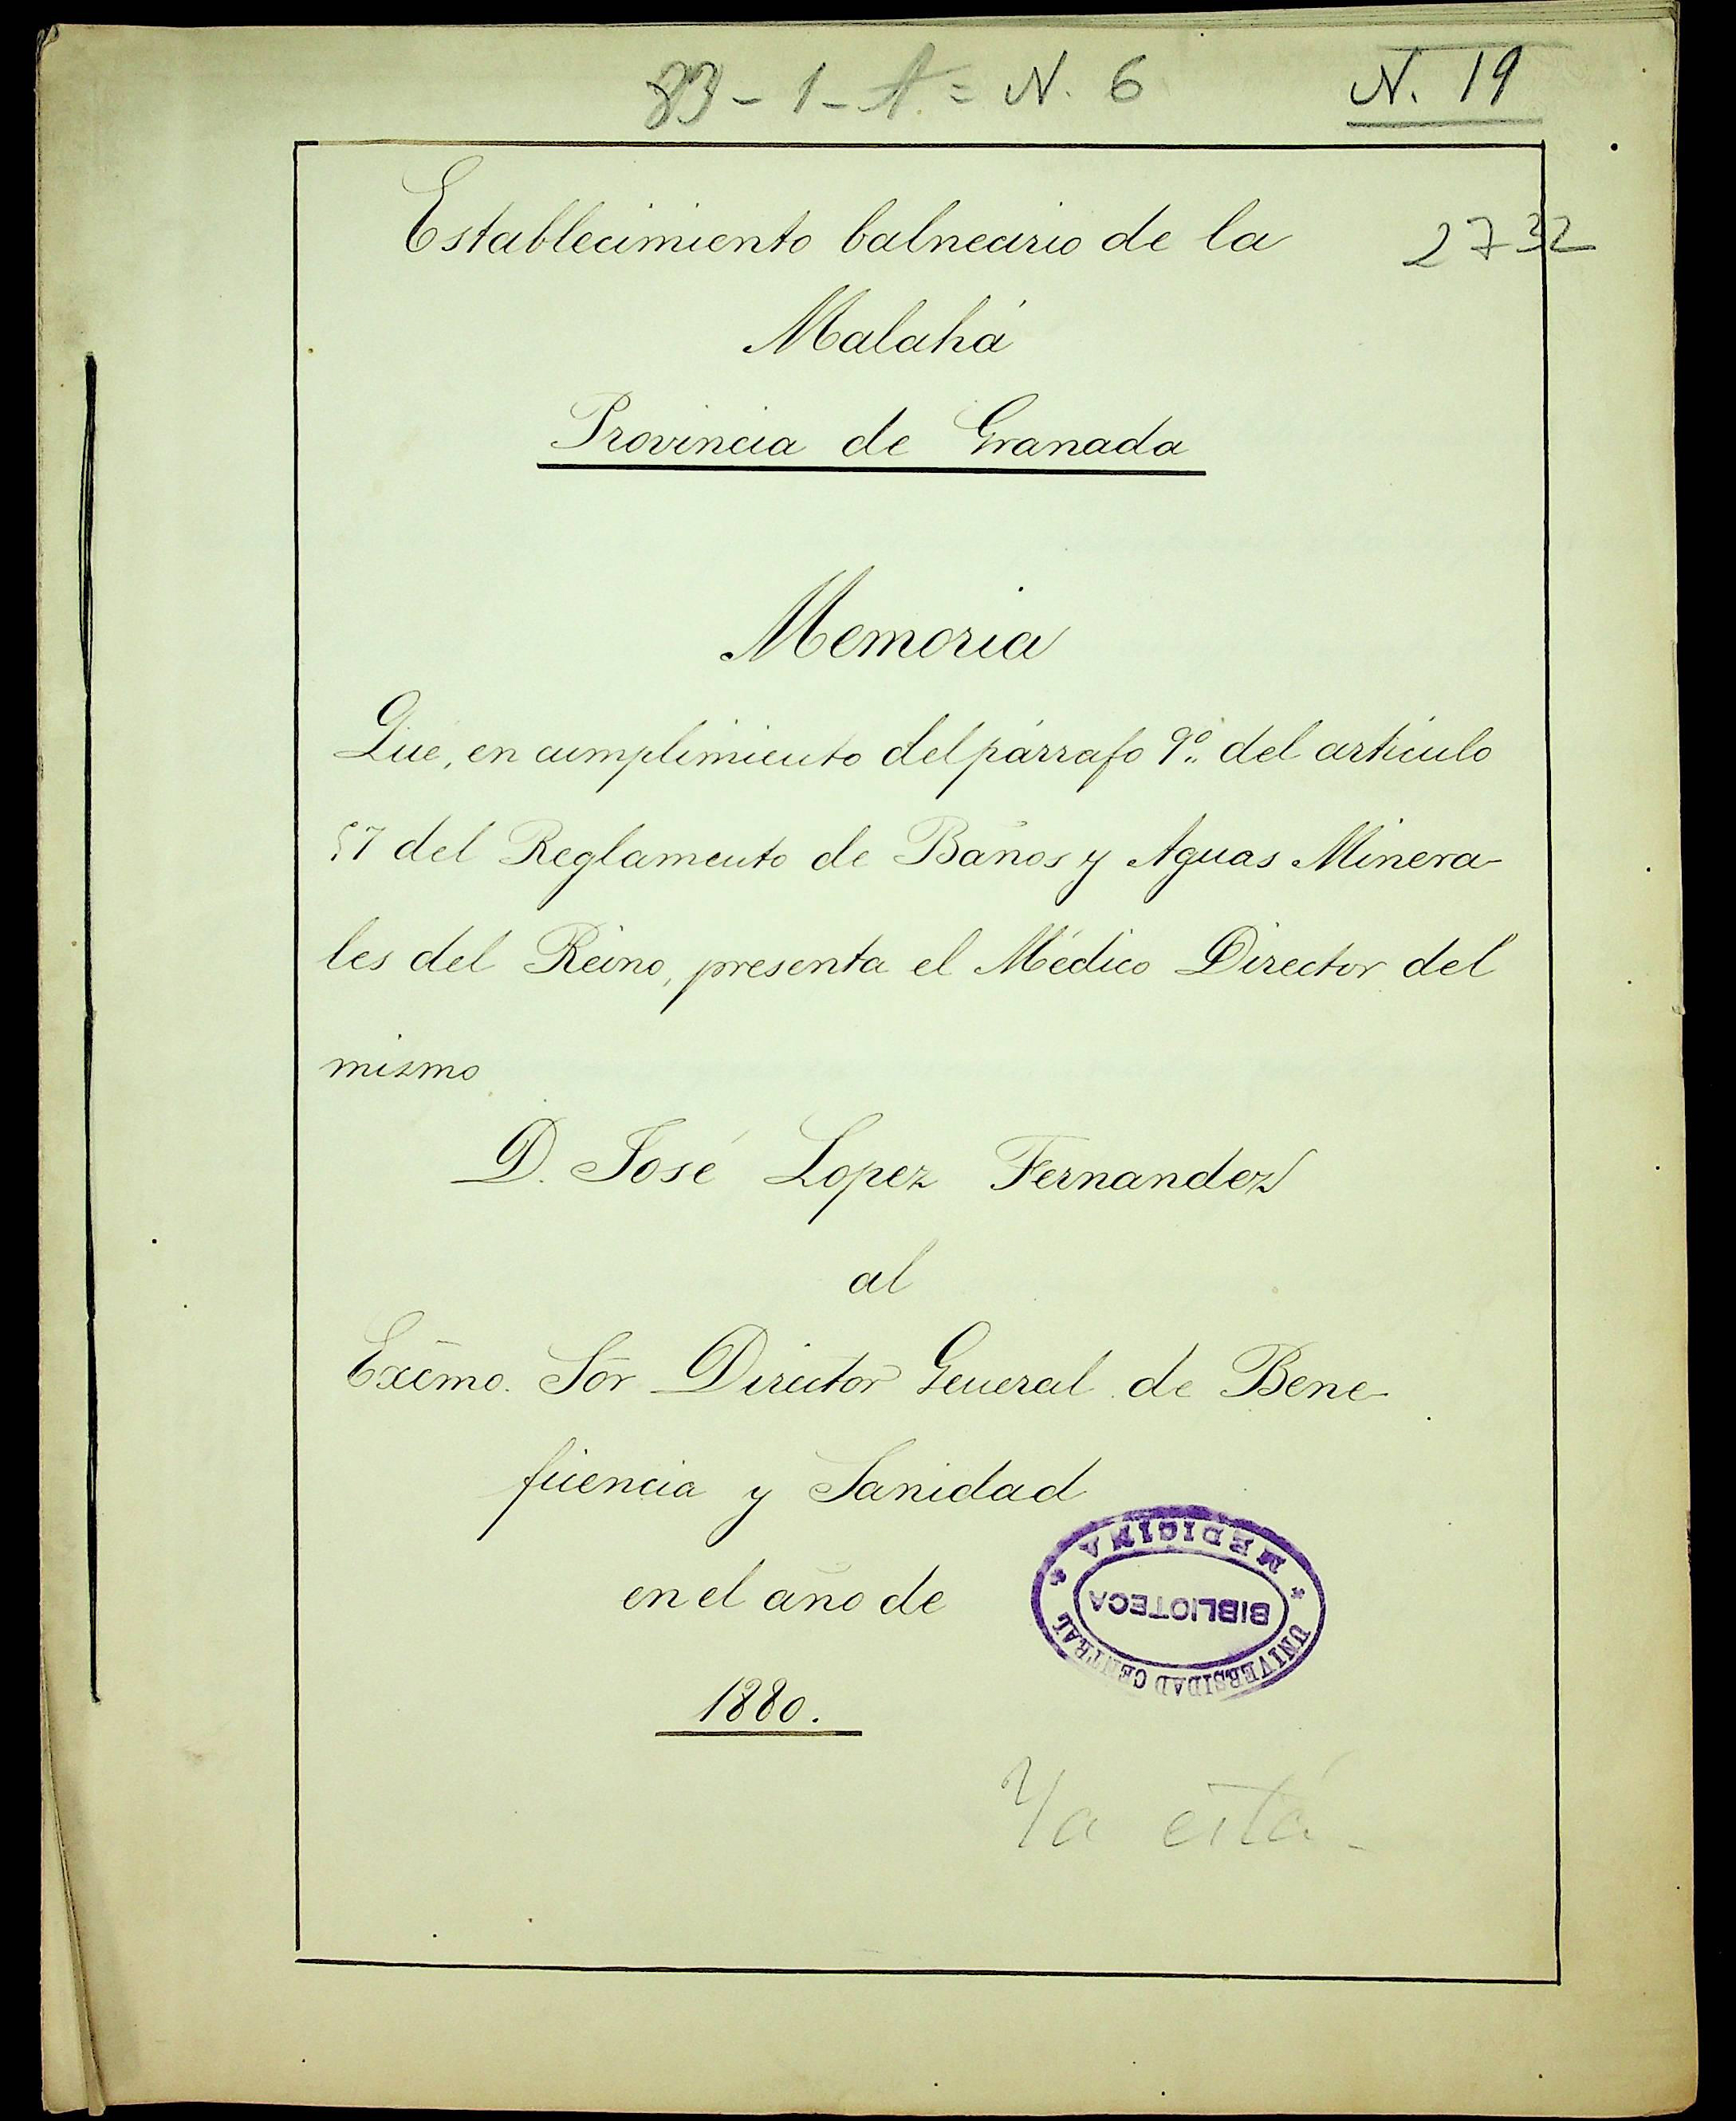 83-1-A = N. 6
N. 19
2732
Establecimiento balneario de la
Malahá
Provincia de Granada
Memoria
Que, en cumplimiento del párrafo 9º del artículo
57 del Reglamento de Baños y Aguas Minera-
les del Reino, presenta el Médico Director del
mismo
D. José Lopez Fernandez
al
Excmo. Sor Director General de Bene-
ficencia y Sanidad
en el año de
1880.
MEDICINA
BIBLIOTECA
UNIVERSIDAD CENTRAL
Ya está-